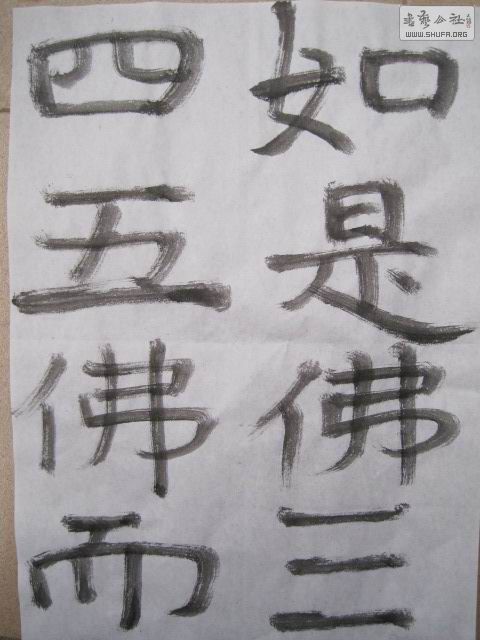 如是佛三
四五佛而
書藝公社
WWW.SHUFA.ORG